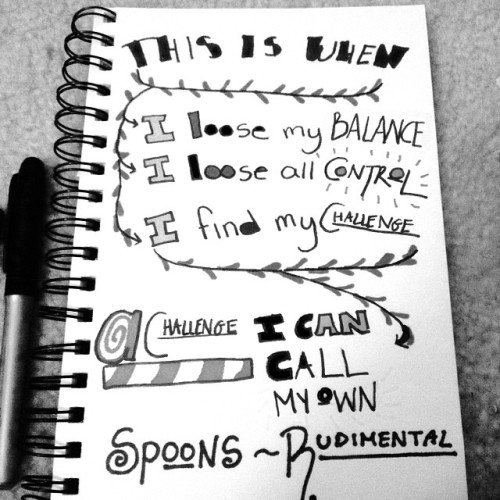 THIS IS WHEN
I loose my BALANCE
I loose all CONTROL
I find my CHALLENGE
a CHALLENGE I CAN
CALL
MY OWN
SPOONS ~ RUDIMENTAL